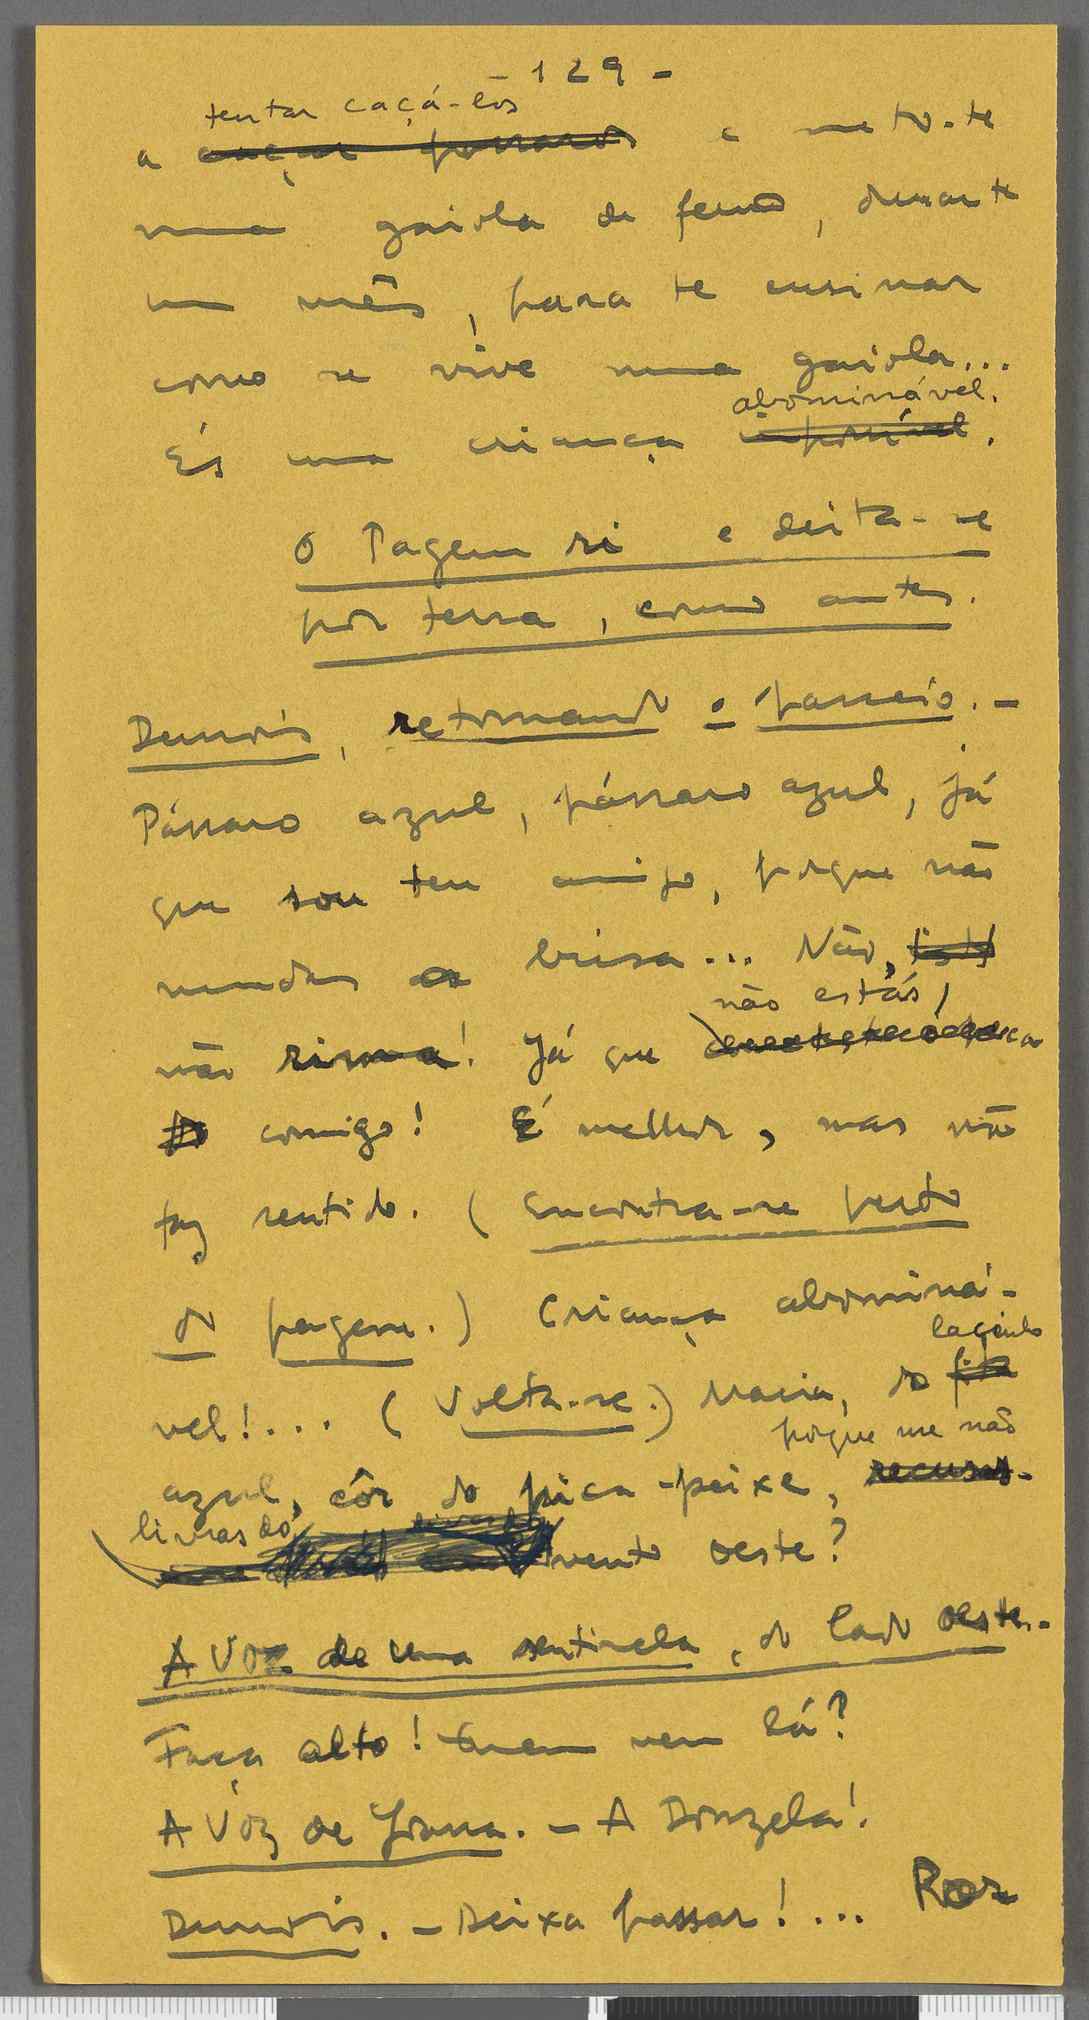 - 129 -
tentar caçá-los
a caçar pássaros e meto-te
numa gaiola de ferro, durante
um mês, para te ensinar
como se vive numa gaiola...
abominável.
És uma criança impossível.
O Pagem ri e deita-se
por terra, como antes.
Dunois, retomando o passeio. -
Pássaro azul, pássaro azul, já
que sou teu amigo, porque não
mudas a brisa... Não, isto
não estás
não rima! Já que
do comigo! É melhor, mas não
faz sentido. (Encontra-se perto
do pagem.) Criança abominá-
lacinho
vel!... (Volta-se.) Maria, do fita
porque me não
azul, côr do pica-peixe, recusas-
livras do
vento oeste?
A Voz de uma sentinela, do lado oeste. -
Faça alto! Quem vem lá?
A Voz de Joana. - A Donzela!
Dunois. - Deixa passar!...